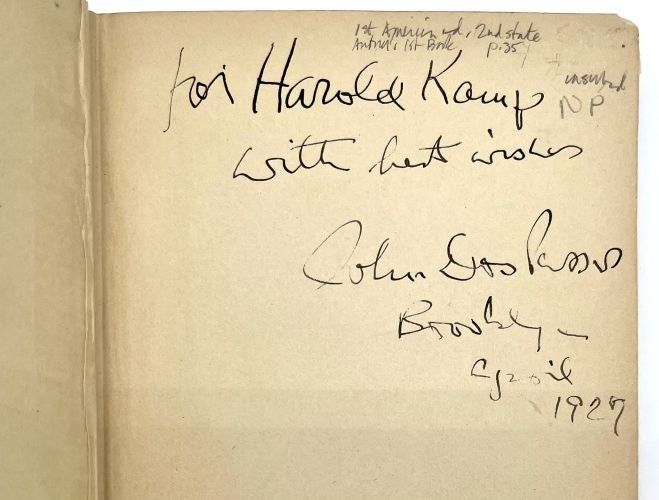 1st American ed, 2nd state
Author's 1st Book p.35
for Harold Kamp
inscribed
NP
with best wishes
John Dos Passos
Brooklyn
April
1927